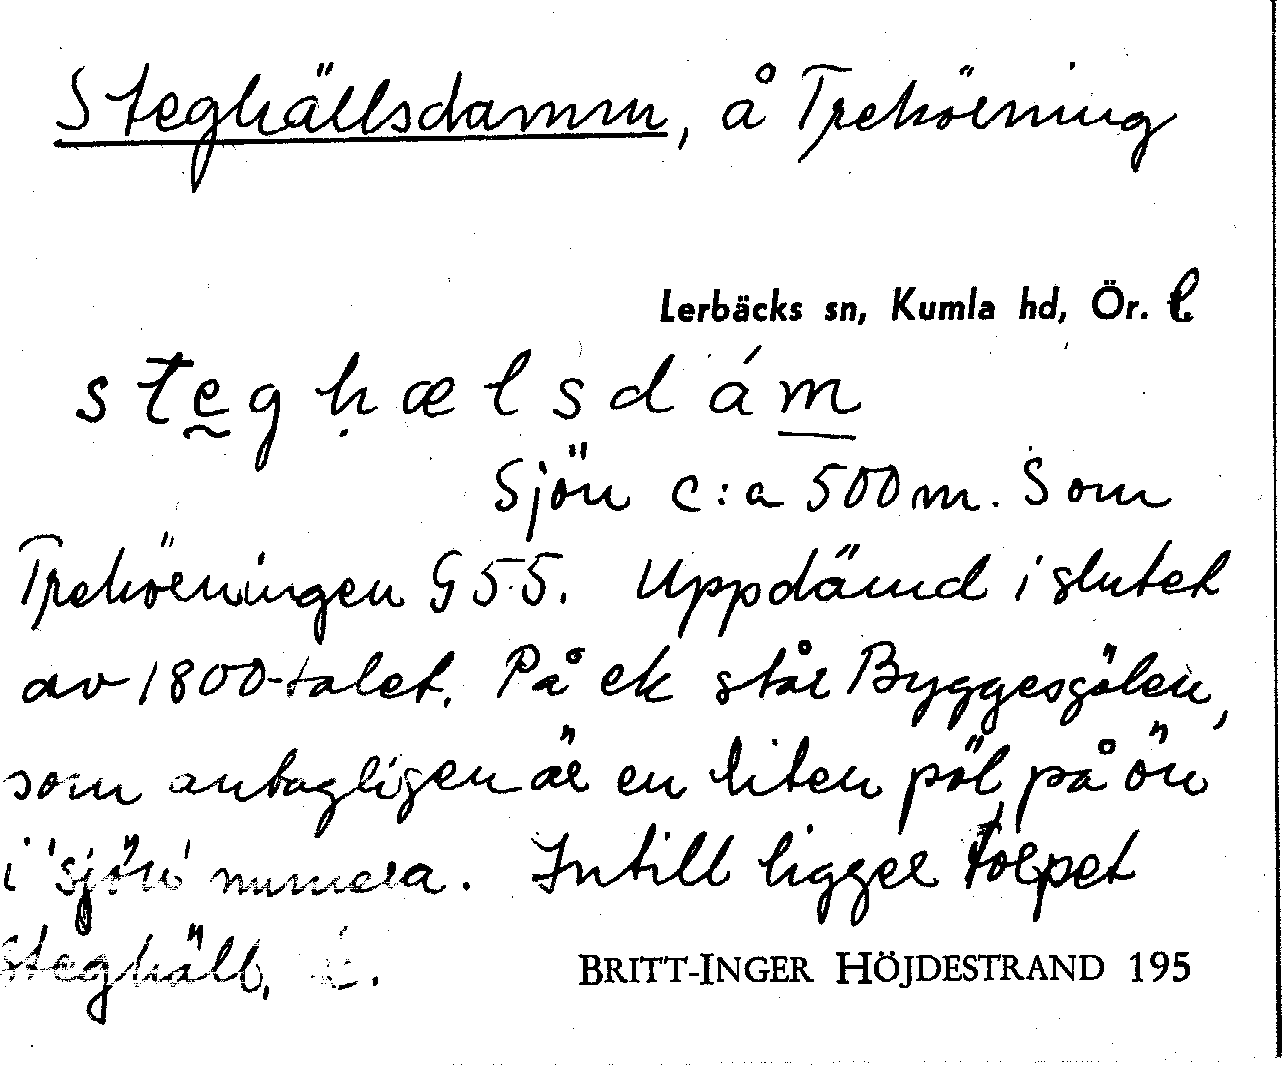 Steghällsdamm, å Trekörning
Lerbäcks sn, Kumla hd, Ör. l
steghælsdám
Sjön c:a 500 m. Som
Trekörningen G55. Uppdämd i slutet
av 1800-talet. På ek står Byggesgölen,
som antagligen är en liten pöl på ön
i 'sjön' numera. Intill ligger torpet
Steghäll,
BRITT-INGER HÖJDESTRAND 195